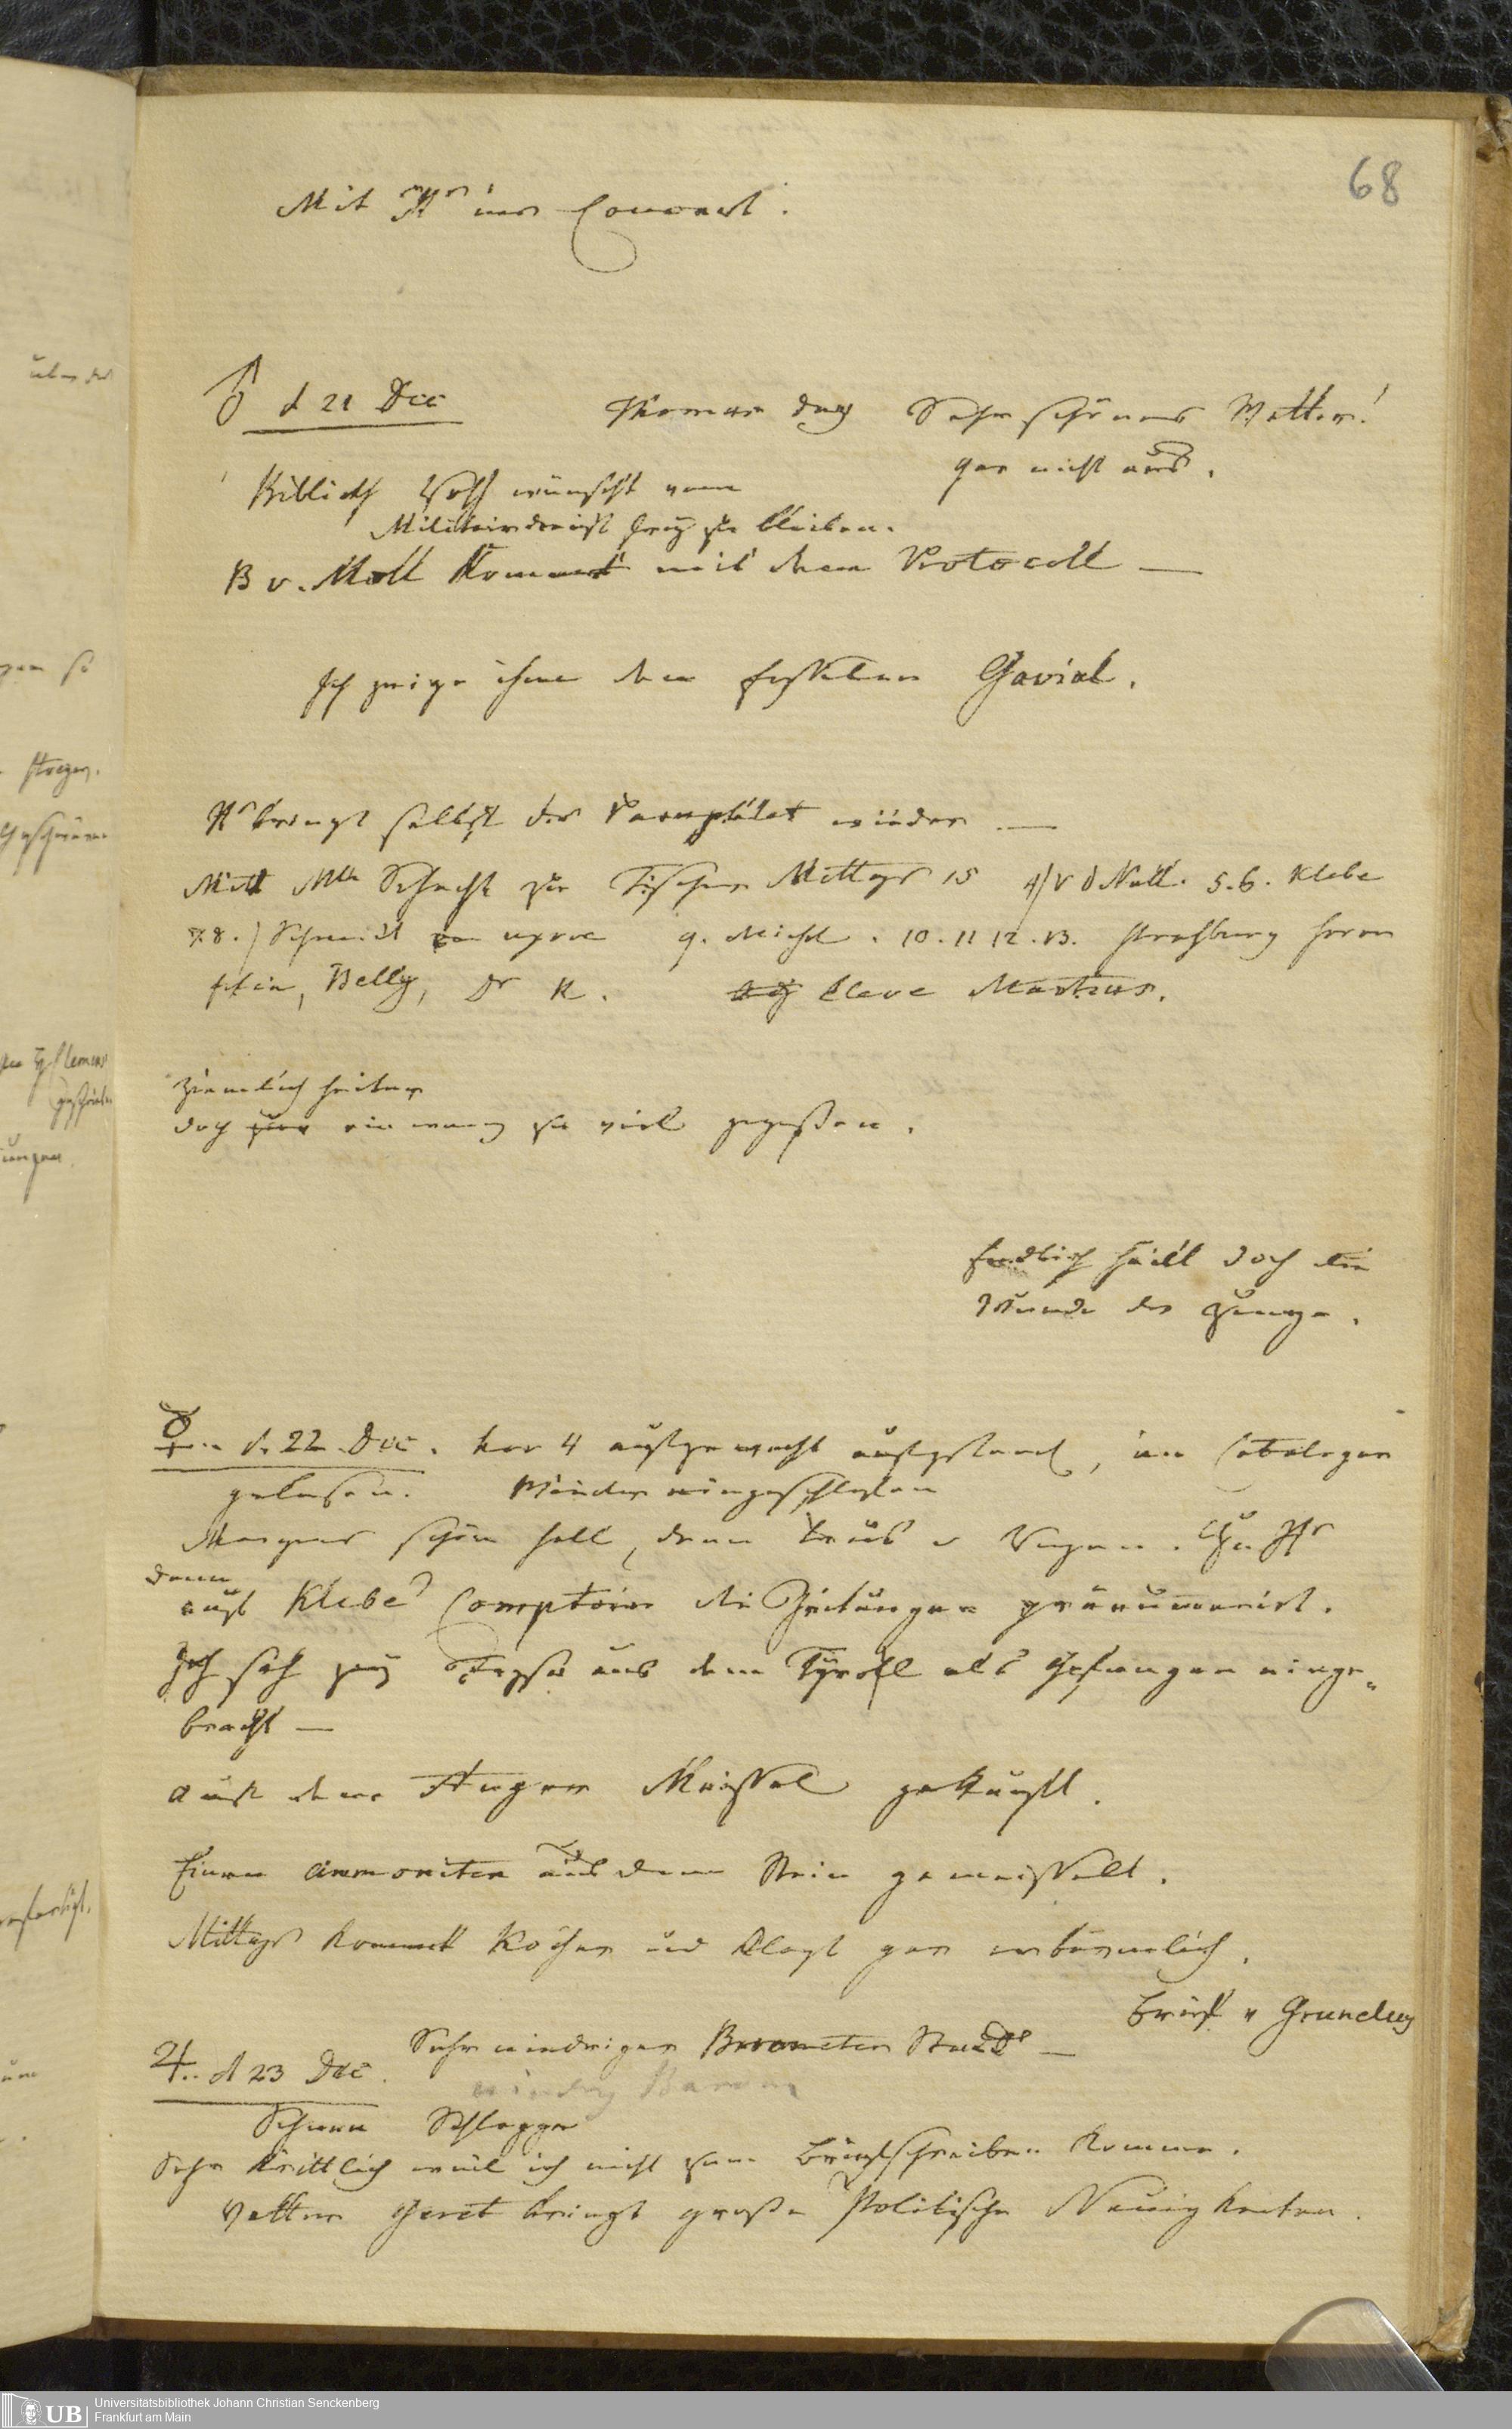 68
Mit Hr ins Concert.
♂ d 21 Dec Thomas Tag Sehr schönes Wetter!
gar nicht aus.
Biblioth wünscht vom
Militairdienst frey zu bleiben.
B v. Moll kommt mit dem Protocoll —
Ich zeige ihm den fossilen Gavial.
Hr bringt selbst das Pamphlet wieder —
Mit Mlle Schacht zu Tische Mittags 15 4) V d Null. 5.6. Klebe
7.8.) Schmidt 9. Michel. 10. 11 12. 13. Strasburg
Belly, Dr K. Cleve Martius.
Ziemlich heiter
doch ein wenig zu viel gegessen.
Endlich heilt doch die
Wunde der Zunge.
☿.. d. 22. Dec. vor 4 aufgewacht aufgestand, im Catalogen
gelesen. Wieder eingeschlafen
Morgens schön hell, dann trüb u Regen. Zu Hr
dann
auf Klebe's Comptoir die Zeitungen pränumerirt.
Ich sah zwey aus dem Tyroll als Gefangen einge-
bracht —
Auf dem Anger Meissel gekauft.
Einen Ammoniten aus dem Stein gemeisselt.
Mittags kommt Köcher und klagt gar erbärmlich.
Brief v Grundig
♃.. d 23 Dec. Sehr niedriger Barometer Stand —
niedrig Barom
Schnee Schlapper
Sehr krittlich weil ich nicht zum Briefschreiben komme.
Vetter Geret bringt große Politische Neuigkeiten.
Universitätsbibliothek Johann Christian Senckenberg
Frankfurt am Main
UB